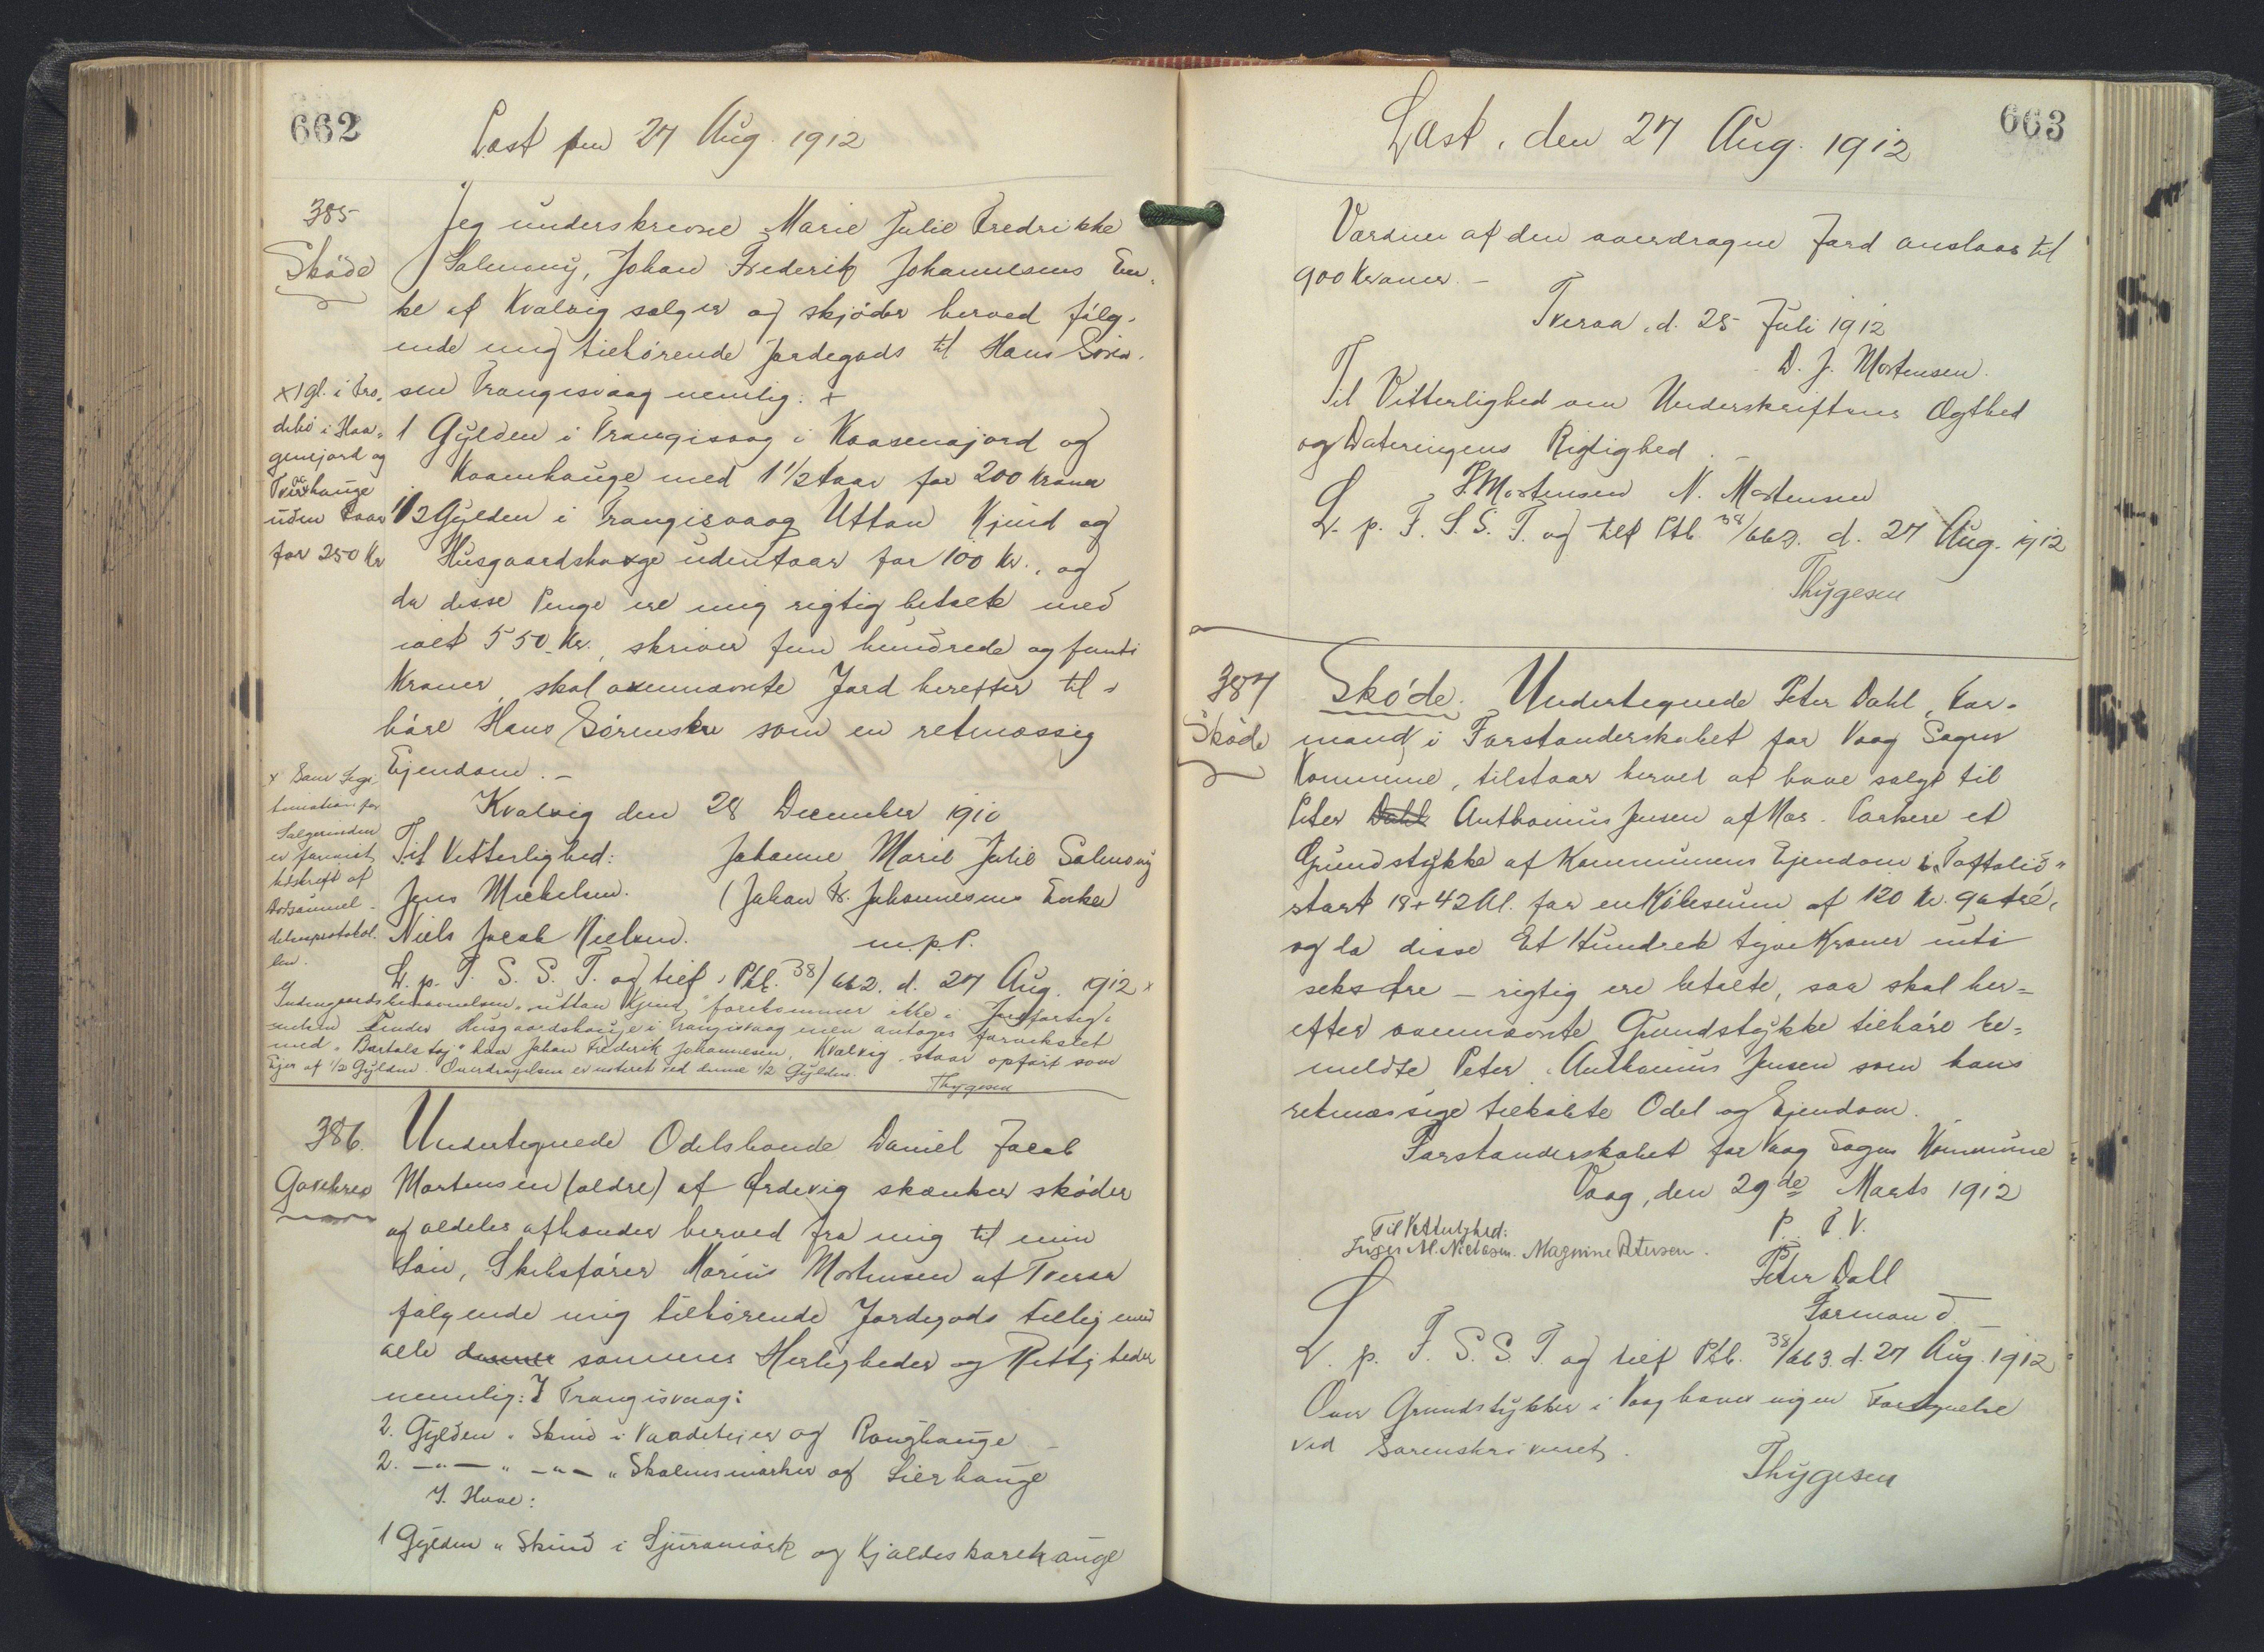 662
Læst den 27 Aug. 1912
385
Skøde
Jeg underskrevne Marie Julie Fredrikke
Salmony, Johan Frederik Johannesens En-
ke af Kvalvig sælger og skjøder herved følg-
ende mig tilhørende Jordegods til Hans Sørn-
sen Trangisvaag nemlig: +
+ 1 gl. i Fro-
debø i Haa-
gensjord og
Tverhauge
uden Taar
for 250 Kr
1 Gylden i Trangisvaag i Kaasenajord og
Kaamhauge med 1 1/2 taar for 200 Kroner
1/2 Gylden i Trangisvaag Uttan Kjind og
Husgaardshauge uden taar for 100 Kr., og
da disse Penge ere mig rigtig betalt med
ialt 550 Kr., skriver fem hundrede og femti
Kroner, skal ovennævnte Jord herefter til-
høre Hans Sørensen som en retmæssig
Ejendom. –
Kvalvig den 28 December 1910
Til Vitterlighed: Johanne Marie Julie Salmony
Jens Michelsen. (Johan Fr. Johannesens Enke)
Niels Jacob Nielsen. m.p.P.
L. p. F. S. S. T. og tilf. Ptl. 38/662. d. 27 Aug. 1912 x
x Som Legi-
timation for
Sælgerinden
er forevist
Udskrift af
Dødsanmel-
delsesprotokol-
len.
Indengaardsbenævnelsen "uttan Kjind" forekommer ikke i Jordfortegn-
elsen under Husgaardshauge i Trangisvaag men antages forvekslet
med "Bartalstoj" hvor Johan Frederik Johannesen, Kvalvig, staar opført som
Ejer af 1/2 Gylden. Overdragelsen er noteret ved denne 1/2 Gylden.
Thygesen
386.
Gavebrev
Undertegnede Odelsbonde Daniel Jacob
Mortensen (ældre) af Ørdevig skænker skøder
og aldeles afhænder herved fra mig til min
Søn, Skibsfører Marius Mortensen af Tveraa
følgende mig tilhørende Jordegods tillig med
alle denne sammes Herligheder og Rettigheder
nemlig: I Trangisvaag:
2. Gylden " Skind i Vaadeteijer og Ranghauge
2. – " – " – " – " Skalmsmørker og Lierhauge
I. Hove:
1 Gylden " Skind i Sjuramørk og Kjaldeskarehauge
663
Læst, den 27 Aug. 1912
Værdien af den overdragne Jord anslaas til
900 Kroner. –
Tveraa, d. 25 Juli 1912
D. J. Mortensen.
Til Vitterlighed om Underskriftens Ægthed
og Dateringens Rigtighed. –
P. Mortensen N. Mortensen
L. p. F. S. S. T. og tilf Ptl. 38/663. d. 27 Aug. 1912
Thygesen
387
Skøde
Skøde. Undertegnede Peter Dahl, For-
mand i Forstanderskabet for Vaag Sogns
Kommune, tilstaar herved at have solgt til
Peter Dahl Anthonius Jensen af Nor. Parkere et
Grundstykke af Kommunens Ejendom i "Toftalid"
stort 18 + 42 Al. for en Købesum af 120 Kr. 96 Øre,
og da disse Et Hundrede tyve Kroner niti
seks Øre – rigtig ere betalte, saa skal her-
efter ovennævnte Grundstykke tilhøre be-
meldte Peter Anthonius Jensen som hans
retmæssige tilkøbte Odel og Ejendom.
Forstanderskabet for Vaag Sogns Kommune
Vaag, den 29de Marts 1912
Til Vitterlighed: P. F. V.
Inger M. Nielsen. Magnine Petersen. Peter Dahl
Formand
L. p. F. S. S. T. og tilf Ptl. 38/663. d. 27 Aug. 1912
Over Grundstykker i Vaag haves ingen Fortegnelse
ved Sorenskriveriet.
Thygesen